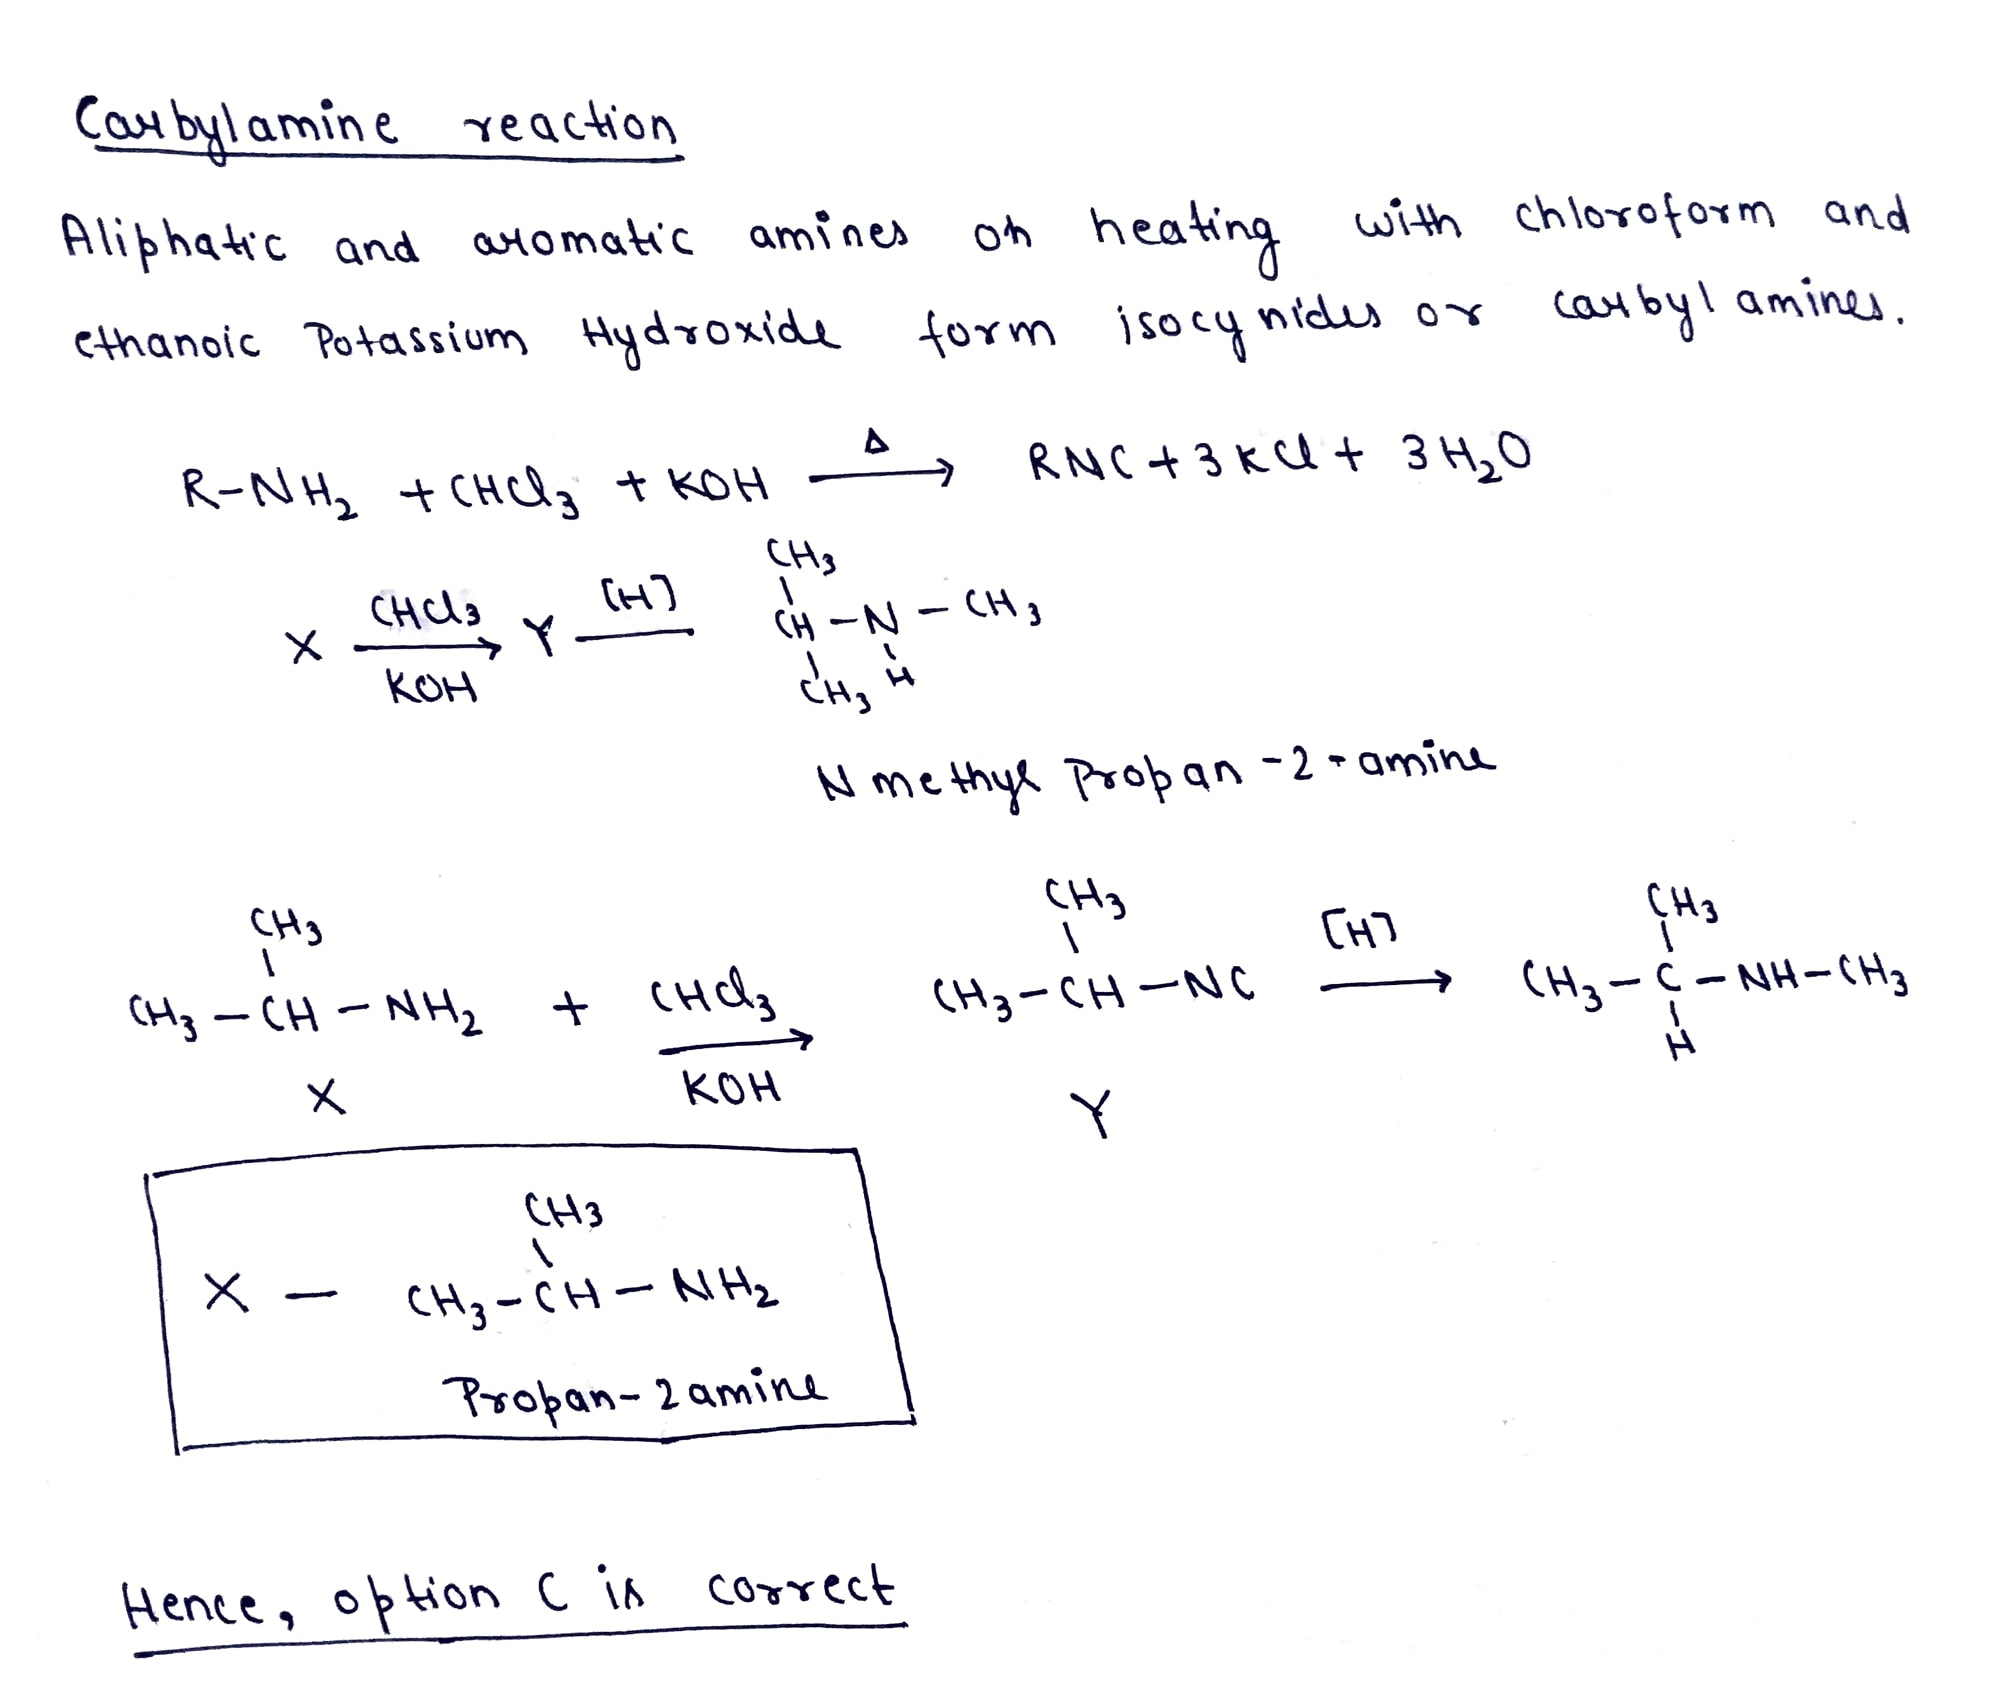 Carbylamine reaction
Aliphatic and aromatic amines on heating with chloroform and
ethanoic Potassium Hydroxide form isocynides or carbyl amines.
R-NH₂ + CHCl₃ + KOH Δ→ RNC + 3KCl + 3H₂O
CH₃
X CHCl₃→ Y [H] CH - N - CH₃
KOH CH₃ H
N methyl Propan-2-amine
CH₃ CH₃ CH₃
CH₃-CH-NH₂ + CHCl₃→ CH₃-CH-NC [H]→ CH₃-C-NH-CH₃
KOH H
X Y
CH₃
X - CH₃-CH-NH₂
Propan-2 amine
Hence, option C is correct